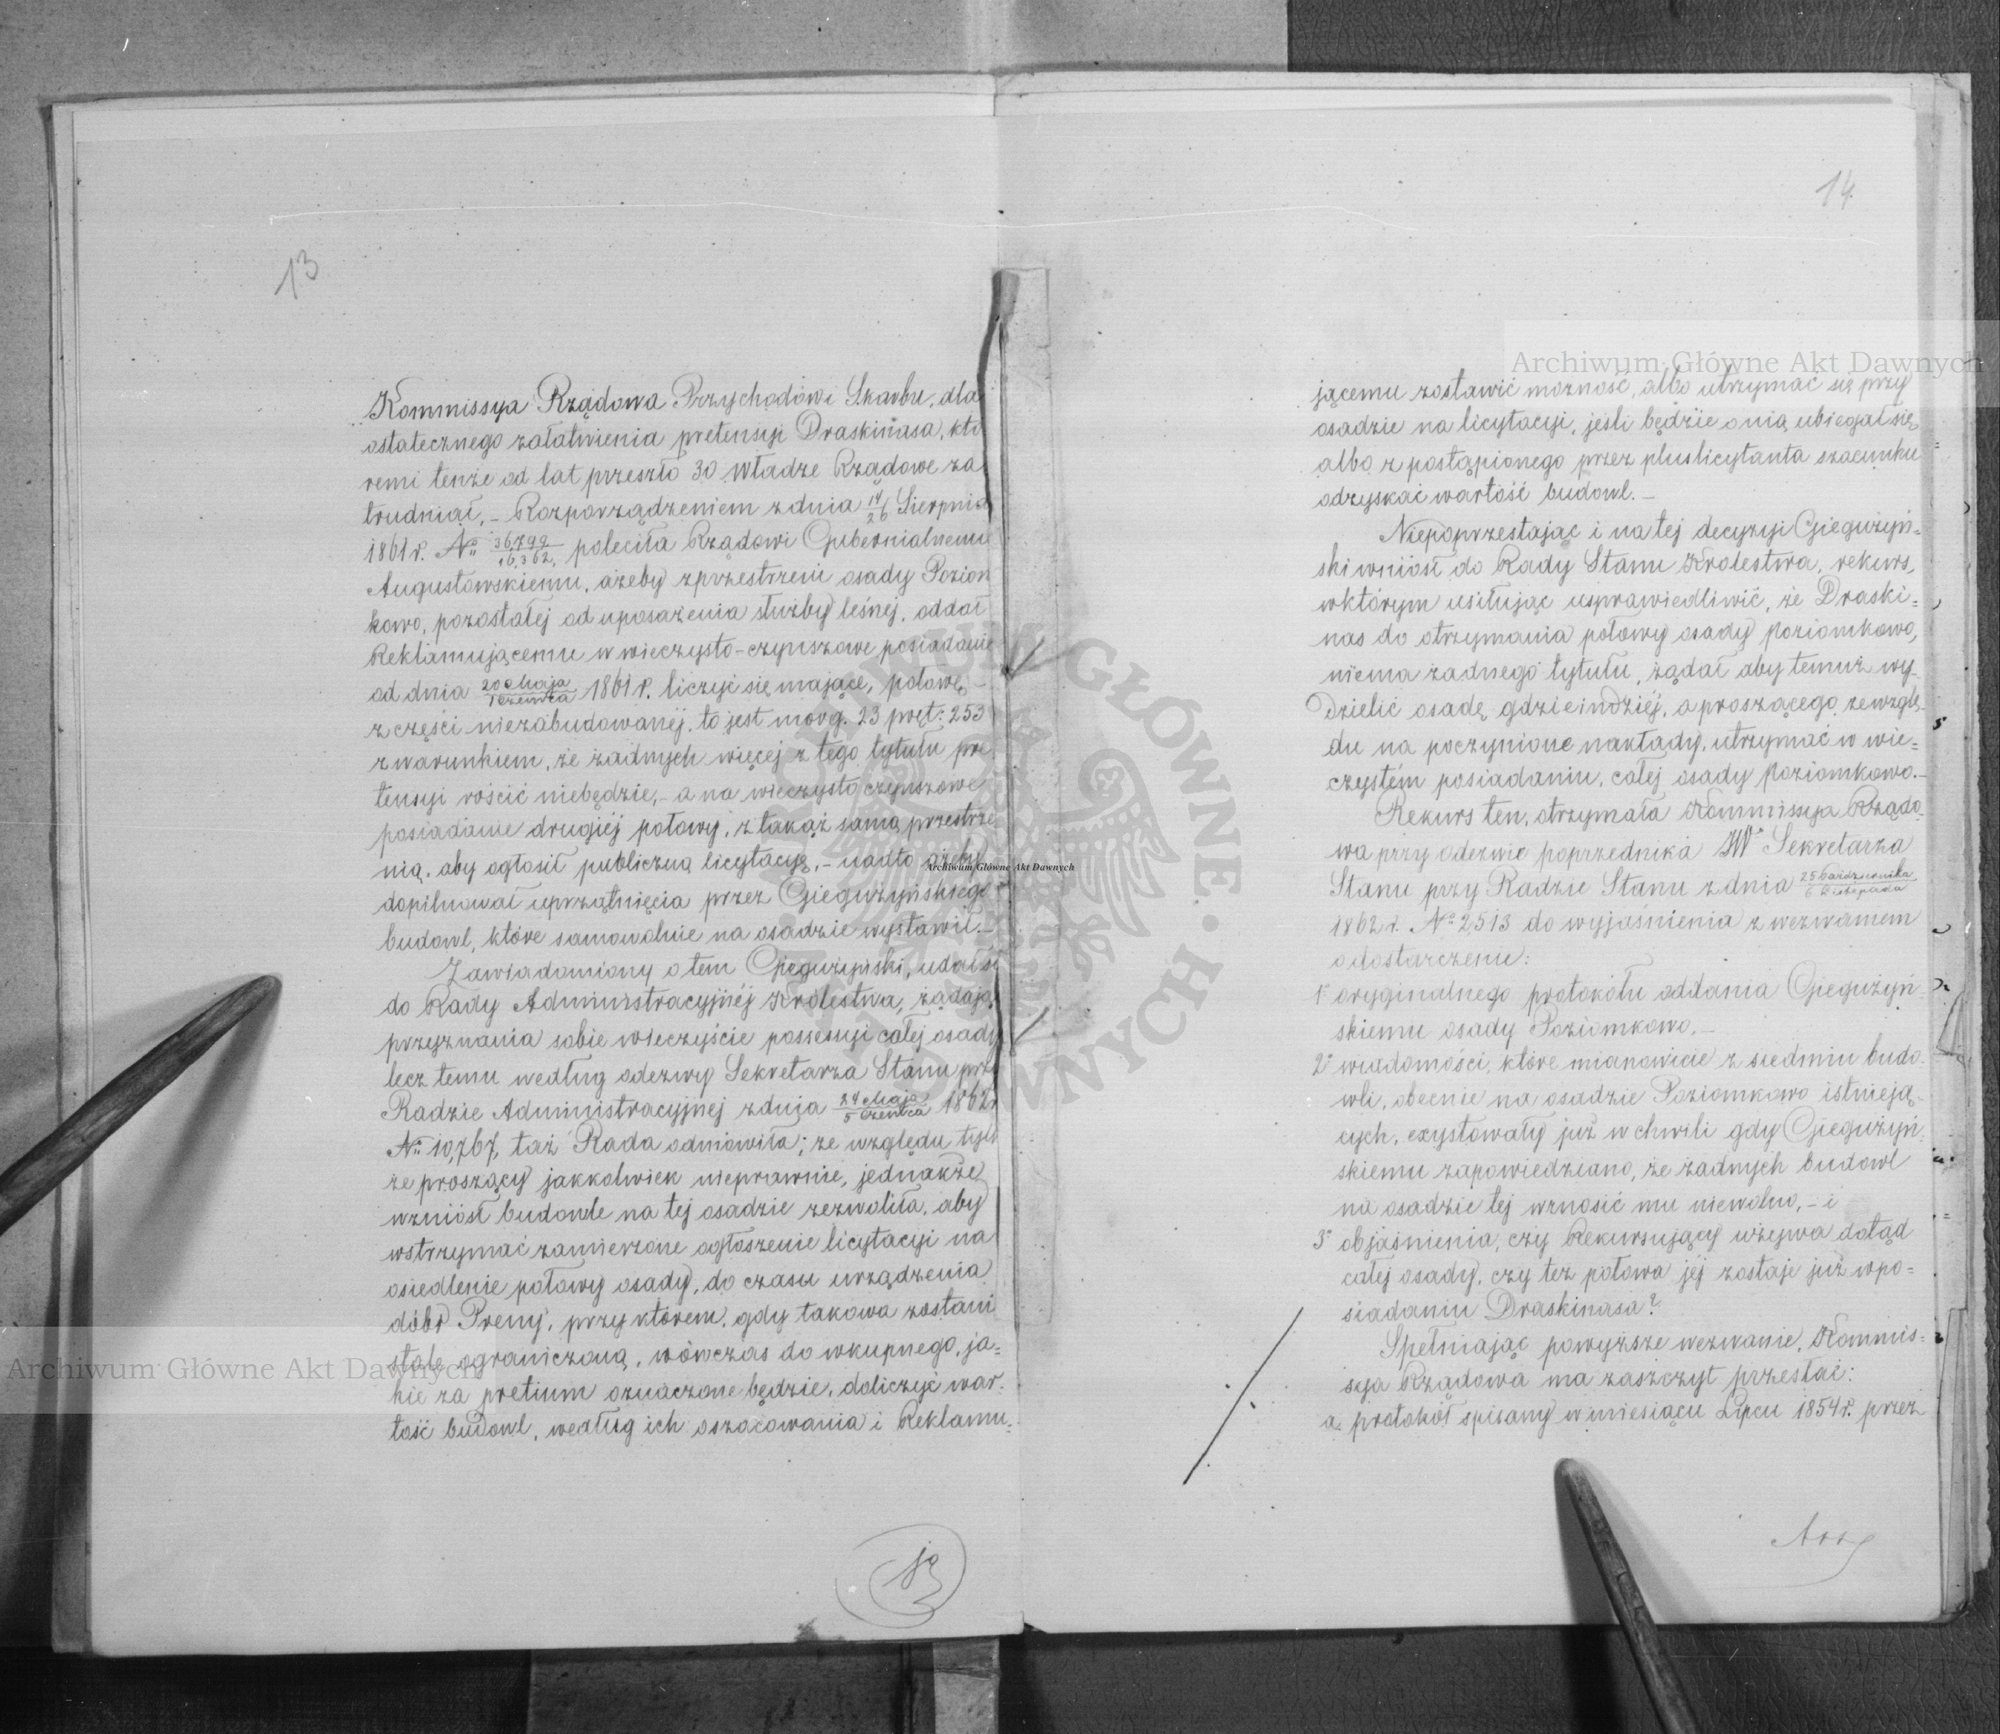 13
Kommissya Rządowa Przychodów i Skarbu, dla
ostatecznego załatwienia pretensyi Draskinasa, któ
remi tenże od lat przeszło 30 Władze Rządowe za
trudniał, – Rozporządzeniem z dnia 14/26 Sierpnia
1861 r. No 36,799/16,362, poleciła Rządowi Gubernialnemu
Augustowskiemu, ażeby z przestrzeni osady Poziom
kowo, pozostałej od uposażenia służby leśnej, oddał
Reklamującemu w wieczysto-czynszowe posiadanie
od dnia 20 Maja/1 Czerwca 1861 r. liczyć się mające, połowę –
z części niezabudowanéj, to jest morg. 23 pręt: 253
z warunkiem, że żadnych więcej z tego tytułu pre
tensyi rościć niebędzie, – a na wieczysto czynszowe
posiadanie drugiéj połowy, z takąż samą przestrze
nią, aby ogłosił publiczną licytacyę, – nadto ażeby
dopilnował uprzątnięcia przez Giegużyńskiego
budowl, które samowolnie na osadzie wystawił. –
Zawiadomiony o tem Giegużyński, udał si
do Rady Administracyjnéj Królestwa, żądają
przyznania sobie wieczyście possessyi całej osady
lecz temu według odezwy Sekretarza Stanu przy
Radzie Administracyjnej z dnia 24 Maja/5 Czerwca 1862 r
No 10,767, taż Rada odmówiła; ze względu tylk
że proszący jakkolwiek nieprawnie, jednakże
wzniósł budowle na tej osadzie zezwoliła, aby
wstrzymać zamierzone ogłoszenie licytacyi na
osiedlenie połowy osady, do czasu urządzenia
dóbr Preny, przy którem, gdy takowa zostani
stale ograniczoną, wówczas do wkupnego, ja=
kie za pretium oznaczone będzie, doliczyć war=
tość budowl, według ich oszacowania i Reklamu=
14
jącemu zostawić możność, albo utrzymać się przy
osadzie na licytacyi, jeśli będzie o nią ubiegał się,
albo z postąpionego przez pluslicytanta szacunku
odzyskać wartość budowl. –
Niepoprzestając i na tej decyzyi Giegużyń=
ski wniósł do Rady Stanu Królestwa, rekurs,
w którym usiłując usprawiedliwić, że Draski=
nas do otrzymania połowy osady Poziomkowo,
niema żadnego tytułu, żądał aby temuż wy=
dzielić osadę gdzieindziéj, a proszącego ze wzglę=
du na poczynione nakłady, utrzymać w wie=
czystém posiadaniu, całej osady Poziomkowo. –
Rekurs ten, otrzymała Kommissya Rządo=
wa przy odezwie poprzednika JW° Sekretarza
Stanu przy Radzie Stanu z dnia 25 Października/6 Listopada
1862 r. No 2513 do wyjaśnienia z wezwaniem
o dostarczenie:
1° oryginalnego protokółu oddania Giegużyń=
skiemu osady Poziomkowo, –
2° wiadomości, które mianowicie z siedmiu budo=
wli, obecnie na osadzie Poziomkowo istnieją=
cych, exystowały już w chwili gdy Giegużyń=
skiemu zapowiedziano, że żadnych budowl
na osadzie tej wznosić mu niewolno, – i
3° objaśnienia, czy Rekursujący używa dotąd
całej osady, czy też połowa jéj zostaje już w po=
siadaniu Draskinasa?
Spełniając powyższe wezwanie, Kommis=
sya Rządowa ma zaszczyt przesłać:
a. protokół spisany w miesiącu Lipcu 1854 r. przez
Archiwum Główne Akt Dawnych